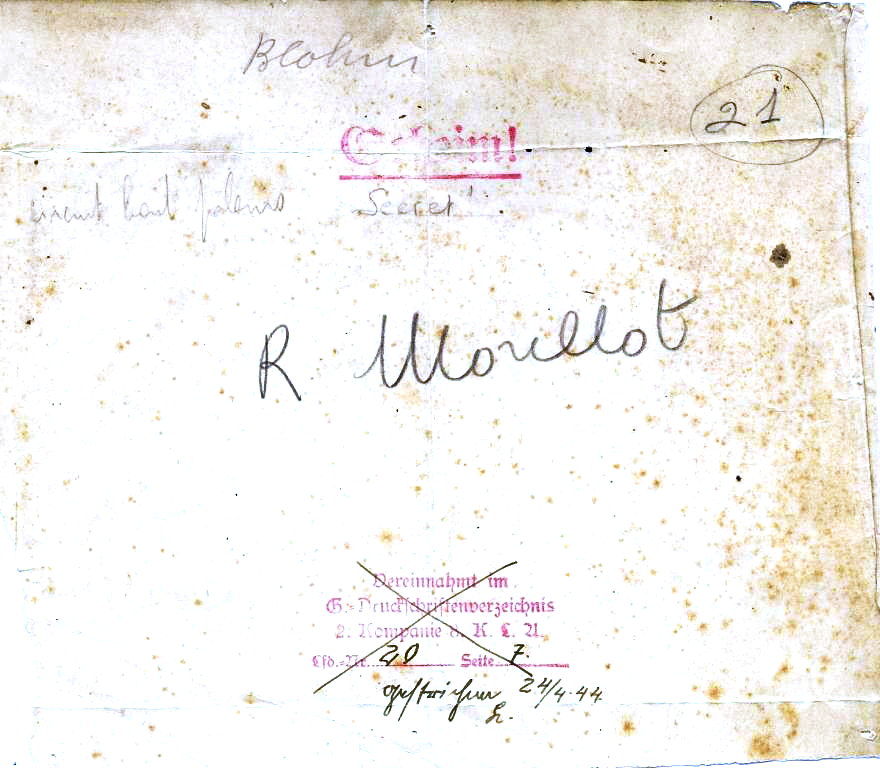 Blohm
21
Geheim!
Secret
R Morillot
Vereinnahmt im
G.-Druckschriftenverzeichnis
2. Kompanie K. L. A.
Lfd.-Nr. 20 Seite 7.
gestrichen 24/4.44